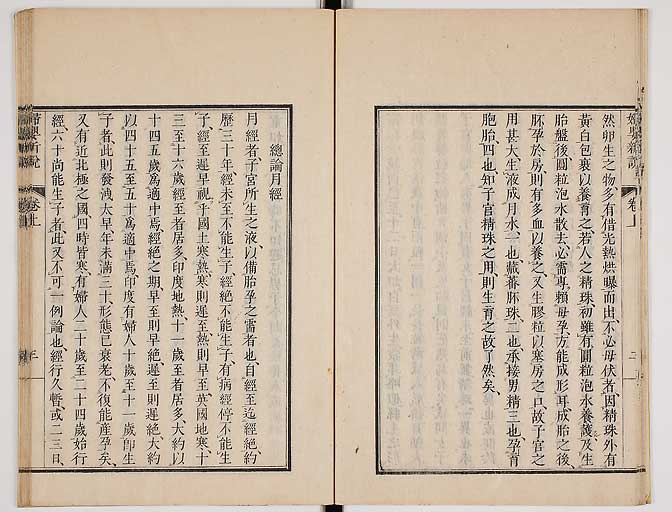 然卵生之物多有借光熱烘曝而出不必母伏者因精珠外有
黃白包裹以養育之若人之精珠初雖有圓粒泡水養護及生
胎盤後圓粒泡水散去必需專賴母孕方能成形耳成胎之後
胚孕於房則有多血以養之又生膠粒以塞房之口故子宮之
用甚大生液成月水一也藏蓄胚珠二也承接男精三也孕育
胞胎四也知子宮精珠之用則生育之故了然矣
婦嬰新說
卷上
二
總論月經
月經者子宮所生之液以備胎孕之需者也自經至迄經絕約
曆三十年經未至不能生子經絕不能生子有病經停不能生
子經至遲早視乎國土寒熱寒則遲至熱則早至英國地寒十
三至十六歲經至者居多印度地熱十一歲至者居多大約以
十四五歲為適中焉經絕之期早至則早絕遲至則遲絕大約
以四十五至五十為適中焉印度有婦人十歲至十一歲即生
子者此則發洩太早年未滿三十形態已衰老不復能產孕矣
又有近北極之國四時皆寒有婦人二十歲至二十四歲始行
經六十尚能生子者此又不可一例論也經行久暫或二三日
婦嬰新說
卷上
三